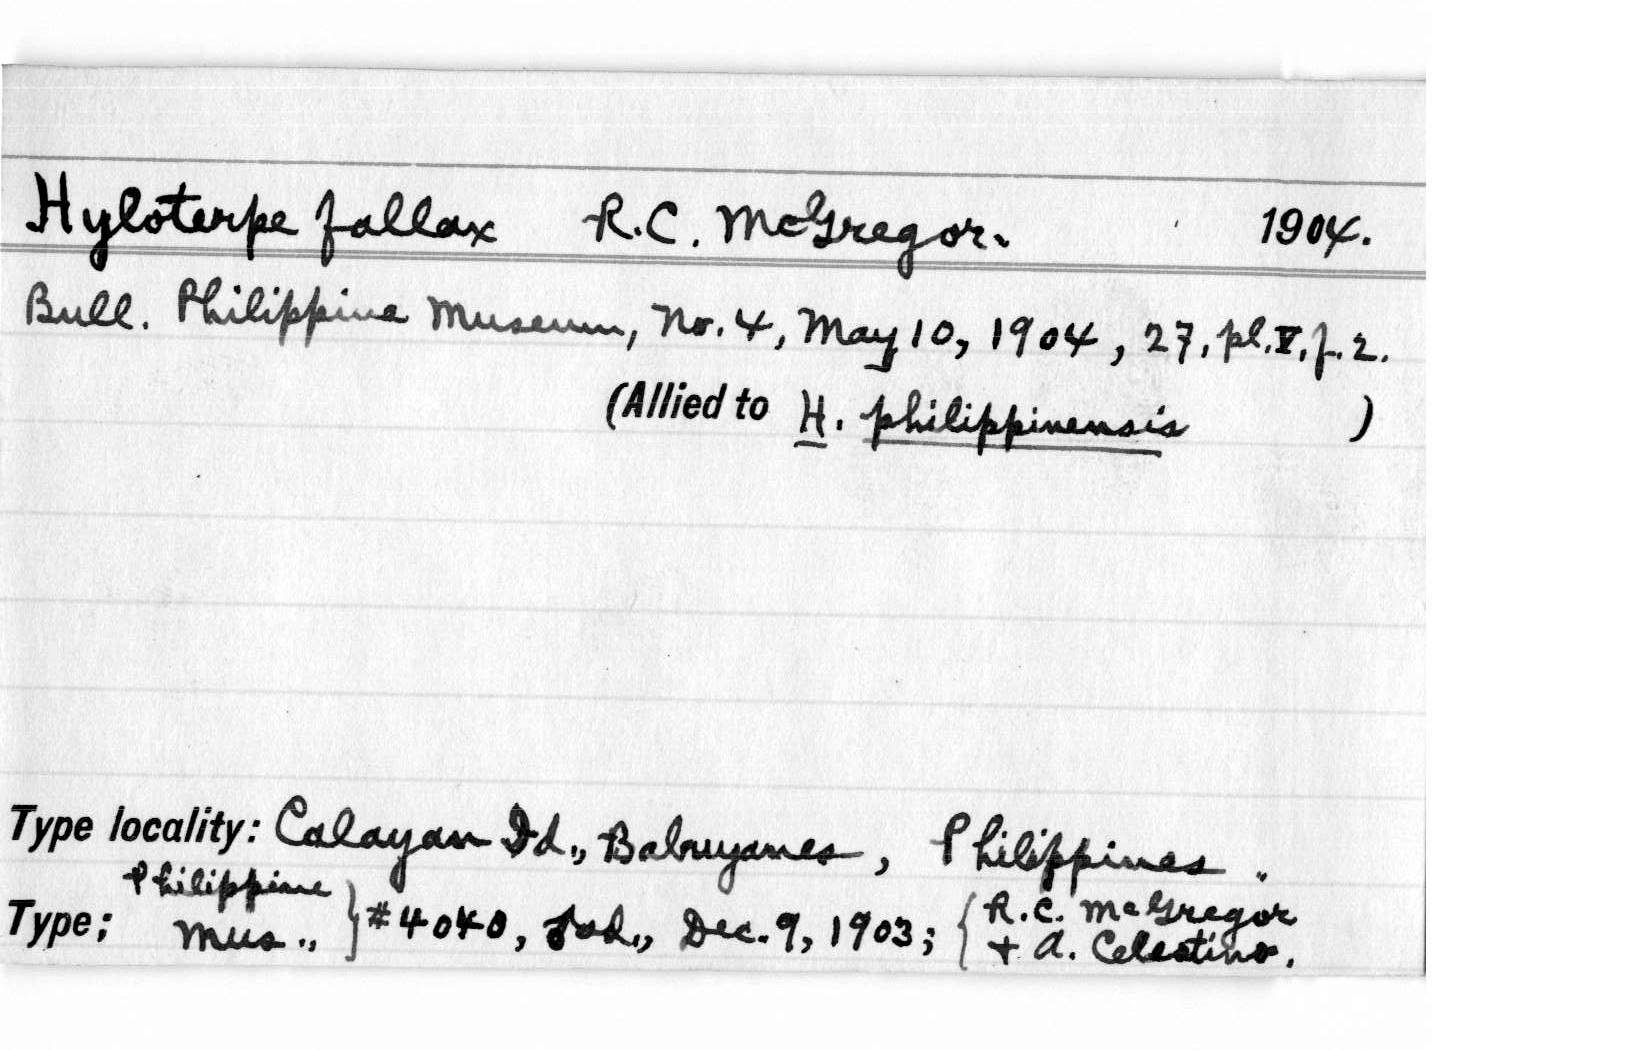 Hyloterpe fallax R.C. McGregor. 1904.
Bull. Philippine Museum, No. 4, May 10, 1904, 27, pl. V, f. 2.
(Allied to H. philippinensis )
Type locality: Calayan Id., Babuyanes, Philippines.
Philippine
Type; Mus., } #4040, ad., Dec. 9, 1903; { R.C. McGregor
+ A. Celestino.